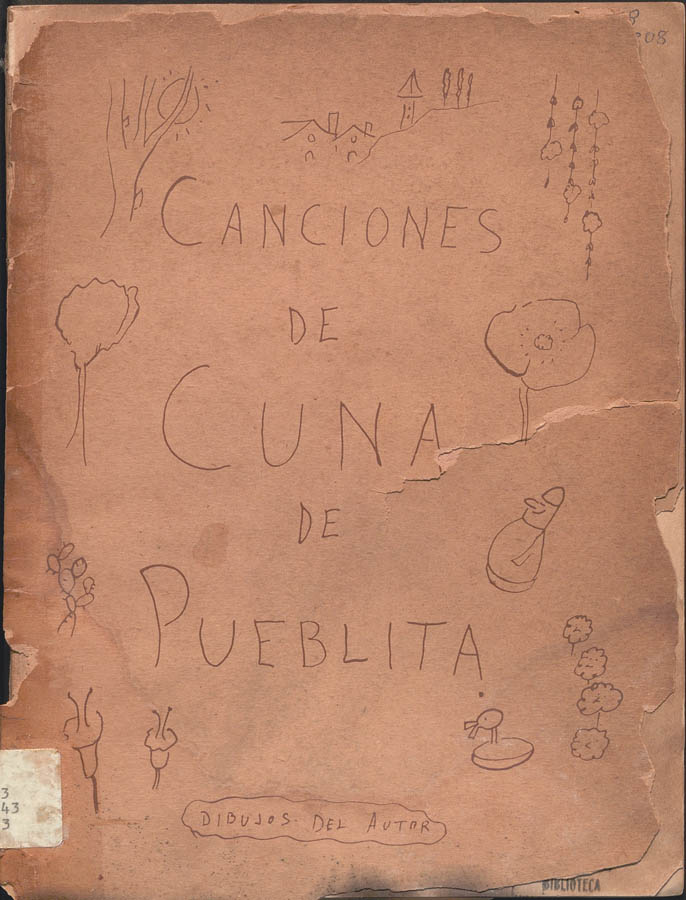 CANCIONES
DE
CUNA
DE
PUEBLITA
DIBUJOS DEL AUTOR
3
43
3
BIBLIOTECA